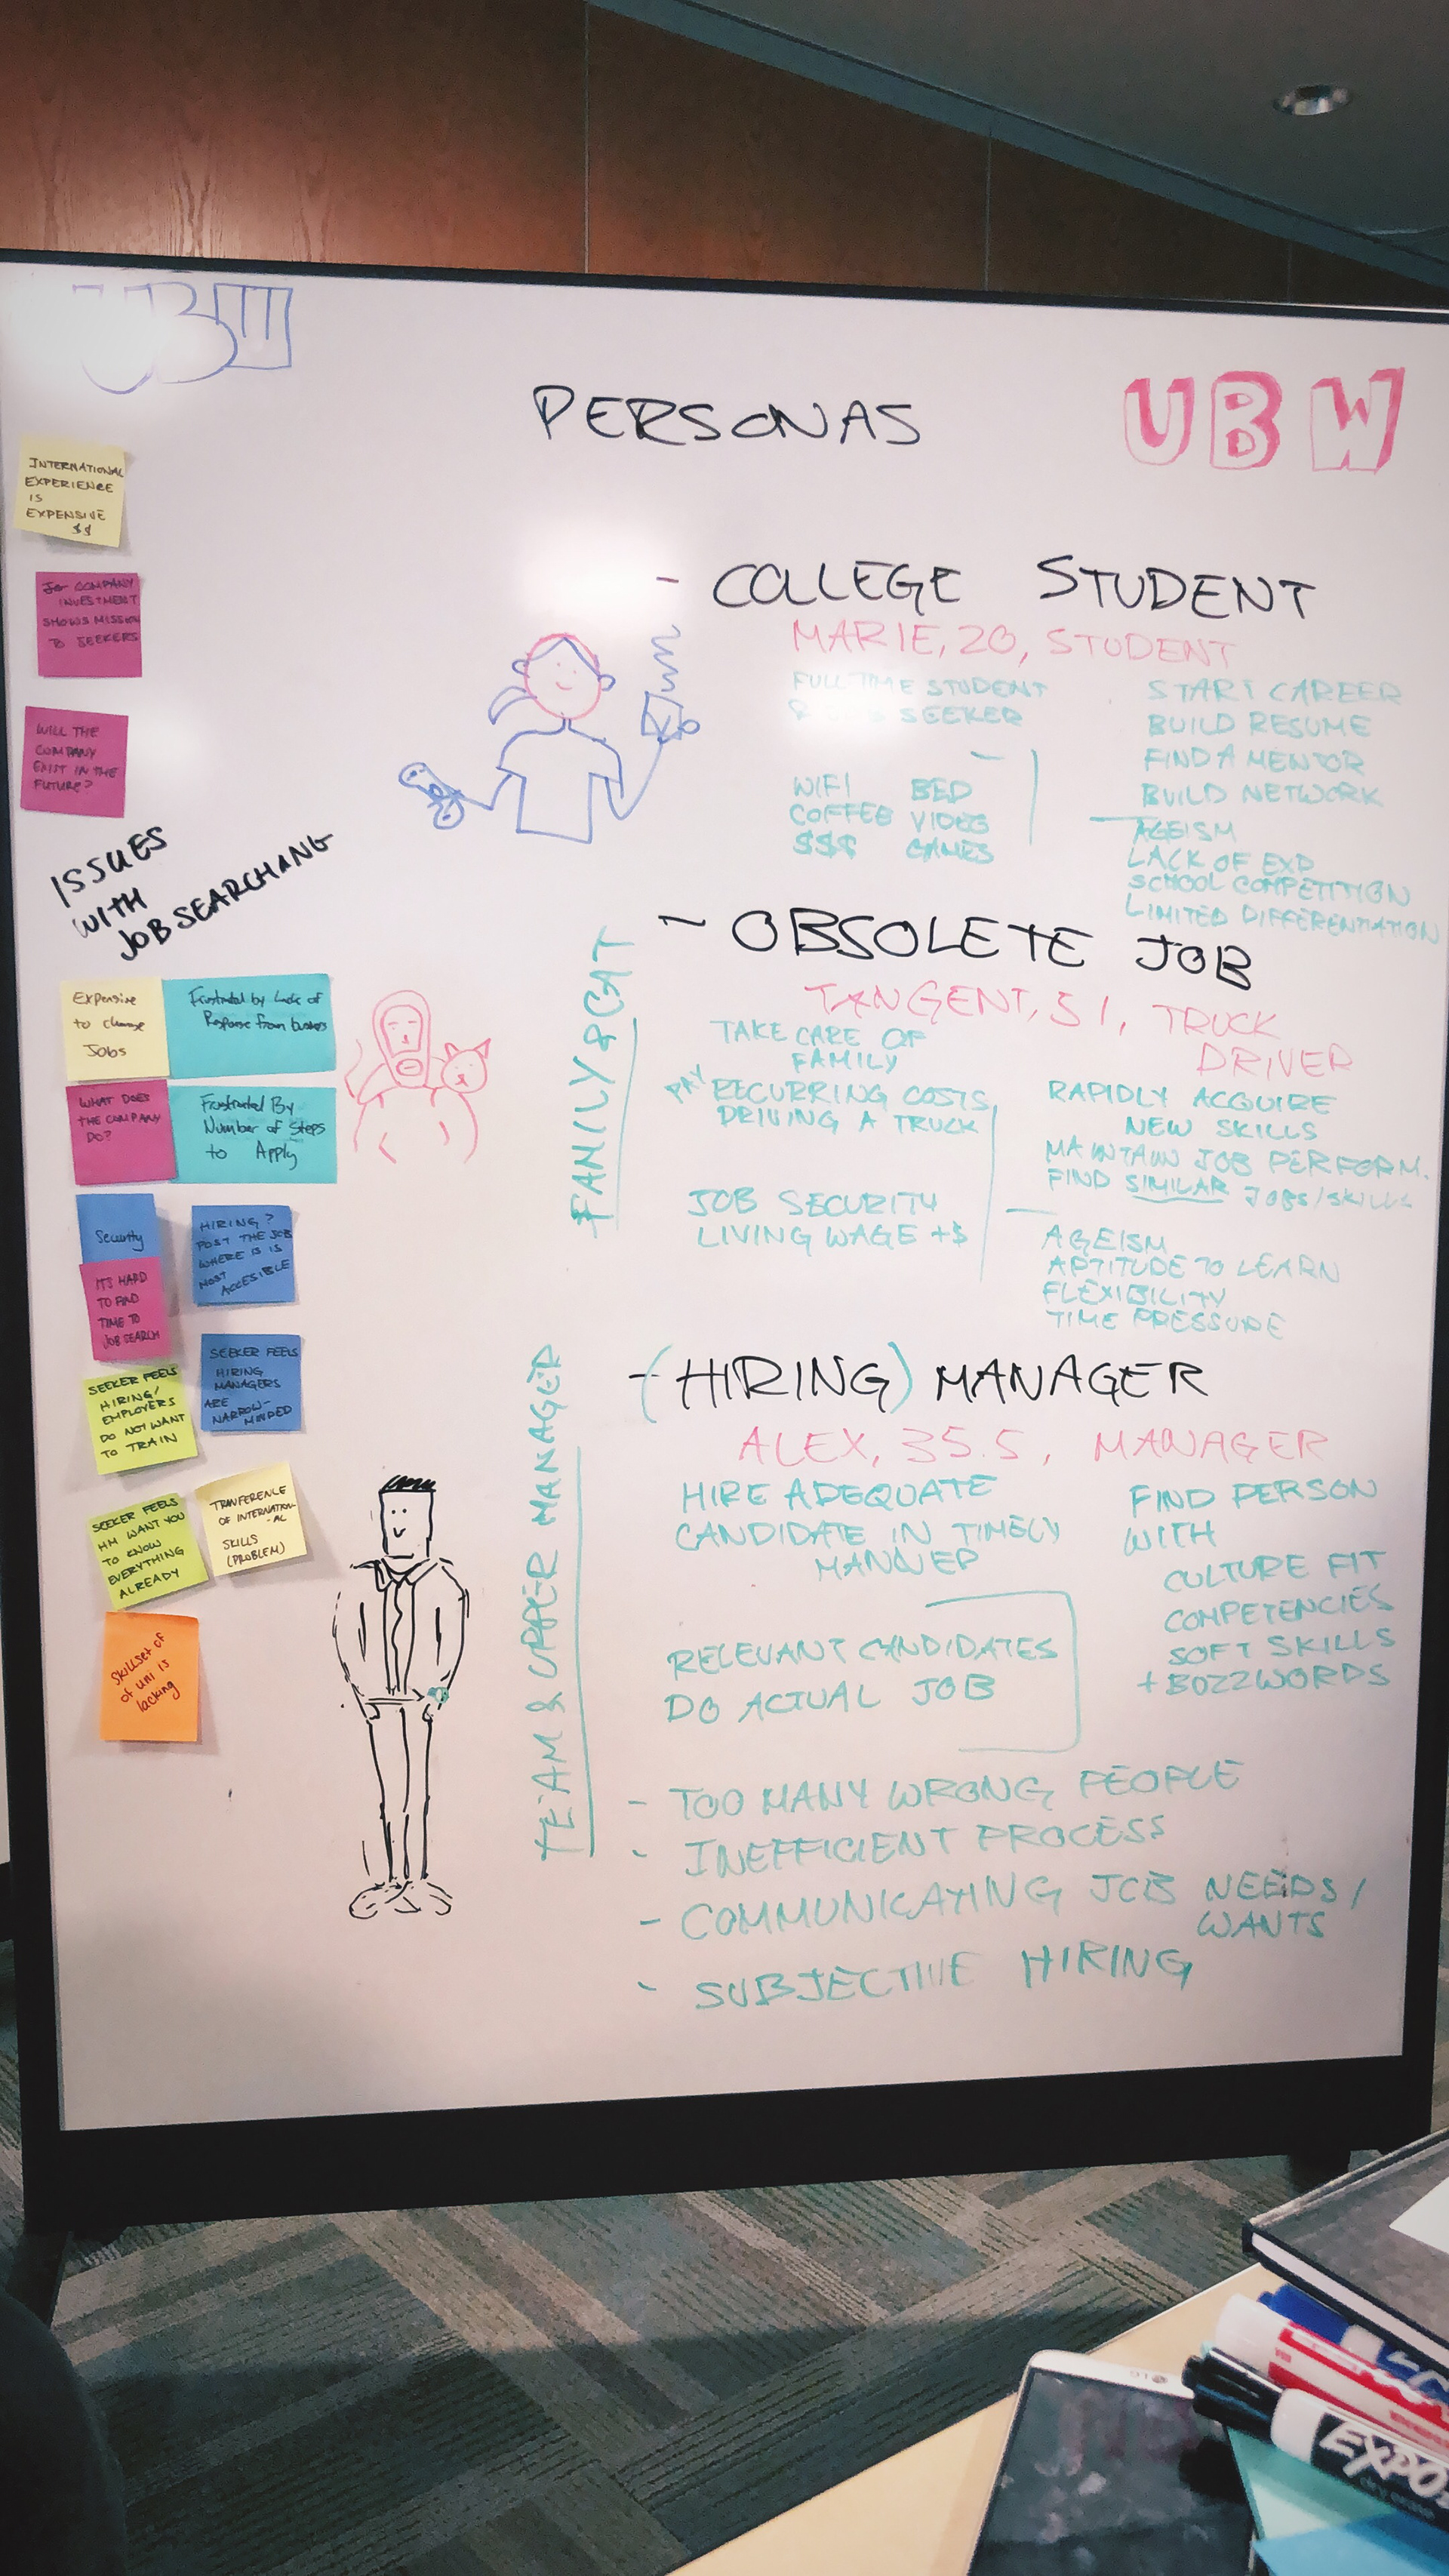 UBW
PERSONAS
UBW
INTERNATIONAL
EXPERIENCE
IS
EXPENSIVE
$$
COMPANY
INVESTMENT
SHOWS MISSION
TO SEEKERS
WILL THE
COMPANY
EXIST IN THE
FUTURE?
ISSUES
WITH
JOB SEARCHANG
Expensive
to change
Jobs
Frustrated by Lack of
Response from
WHAT DOES
THE COMPANY
DO?
Frustrated By
Number of Steps
to Apply
Security
HIRING?
POST THE JOB
WHERE IS IS
MOST
ACCESIBLE
ITS HARD
TO FIND
TIME TO
JOB SEARCH
SEEKER FEELS
HIRING
MANAGERS
ARE
NARROW-
MINDED
SEEKER FEELS
HIRING/
EMPLOYERS
DO NOT WANT
TO TRAIN
SEEKER FEELS
HM WANT YOU
TO KNOW
EVERYTHING
ALREADY
TRANFERENCE
OF INTERNATION-
AL
SKILLS
(PROBLEM)
Skillset of
uni is
lacking
- COLLEGE STUDENT
MARIE, 20, STUDENT
FULL TIME STUDENT
& SEEKER
WIFI BED
COFFEE VIDEO
$$$ GAMES
START CAREER
BUILD RESUME
FIND A MENTOR
BUILD NETWORK
AGEISM
LACK OF EXP
SCHOOL COMPETITION
LIMITED DIFFERENTIATION
- OBSOLETE JOB
TANGENT, 51, TRUCK
DRIVER
FAMILY & CAT
TAKE CARE OF
FAMILY
PAY RECURRING COSTS
DRIVING A TRUCK
JOB SECURITY
LIVING WAGE +$
RAPIDLY ACQUIRE
NEW SKILLS
MAINTAIN JOB PERFORM.
FIND SIMILAR JOBS/SKILLS
AGEISM
APTITUDE TO LEARN
FLEXIBILITY
TIME PRESSURE
- (HIRING) MANAGER
ALEX, 35.5, MANAGER
TEAM & UPPER MANAGER
HIRE ADEQUATE
CANDIDATE IN TIMELY
MANNER
RELEVANT CANDIDATES
DO ACTUAL JOB
FIND PERSON
WITH
CULTURE FIT
COMPETENCIES
SOFT SKILLS
+ BOZZWORDS
- TOO MANY WRONG PEOPLE
- INEFFICIENT PROCESS
- COMMUNICATING JOB NEEDS/
WANTS
- SUBJECTIVE HIRING
EXPO